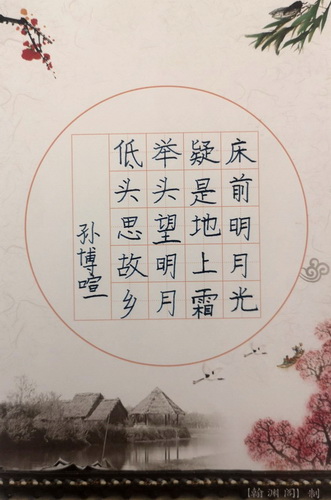 床前明月光
疑是地上霜
举头望明月
低头思故乡
孙博喧
【翰渊阁】制